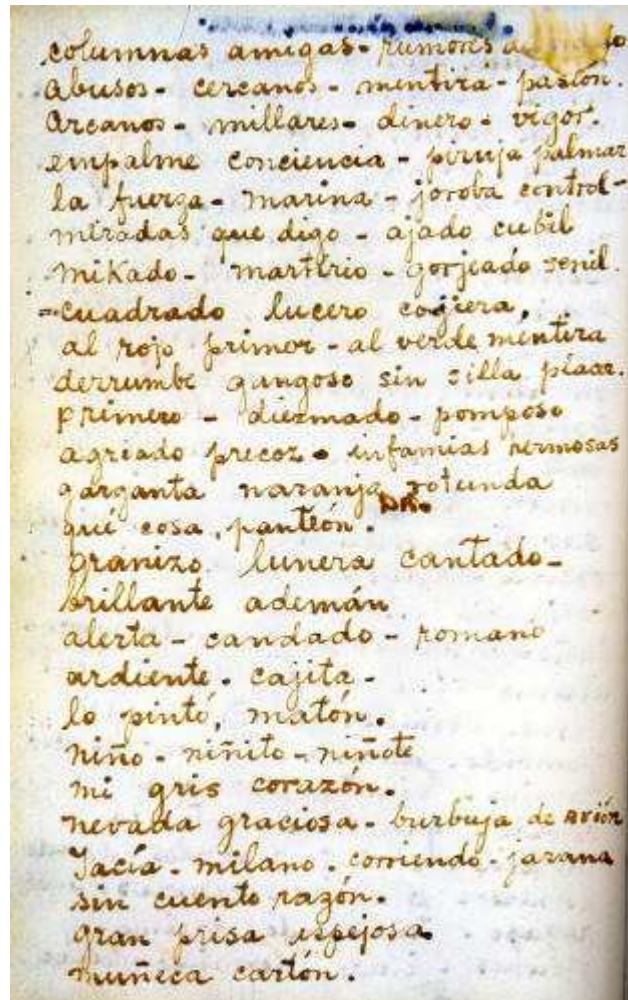 columnas amigas - rumores
abusos - cercanos - mentira - pasión.
Arcanos - millares - dinero - vigor.
empalme conciencia - piruja palmar
la fuerza - marina - joroba control -
miradas que digo - ajado cubil
mikado - martirio - gorjeado senil.
= cuadrado lucero cogiera,
al rojo primor - al verde mentira
derrumbe gangoso sin silla placar.
primero - diezmado - pomposo
agriado precoz - infamias hermosas
garganta naranja rotunda
qué cosa, panteón. DR.
granizo lunera cantado -
brillante ademán
alerta - candado - romano
ardiente. cajita -
lo pintó, matón.
niño - niñito - niñote
mi gris corazón.
nevada graciosa - burbuja de avión
Yacía - milano - corriendo - jarana
sin cuento razón.
gran prisa espejosa
muñeca cartón.